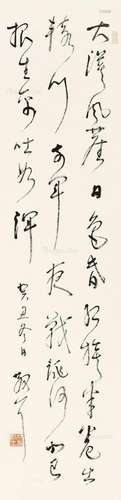 大漠風塵日色昏紅旗半卷出
轅門前軍夜戰洮河北已
報生禽吐谷渾 癸丑冬日